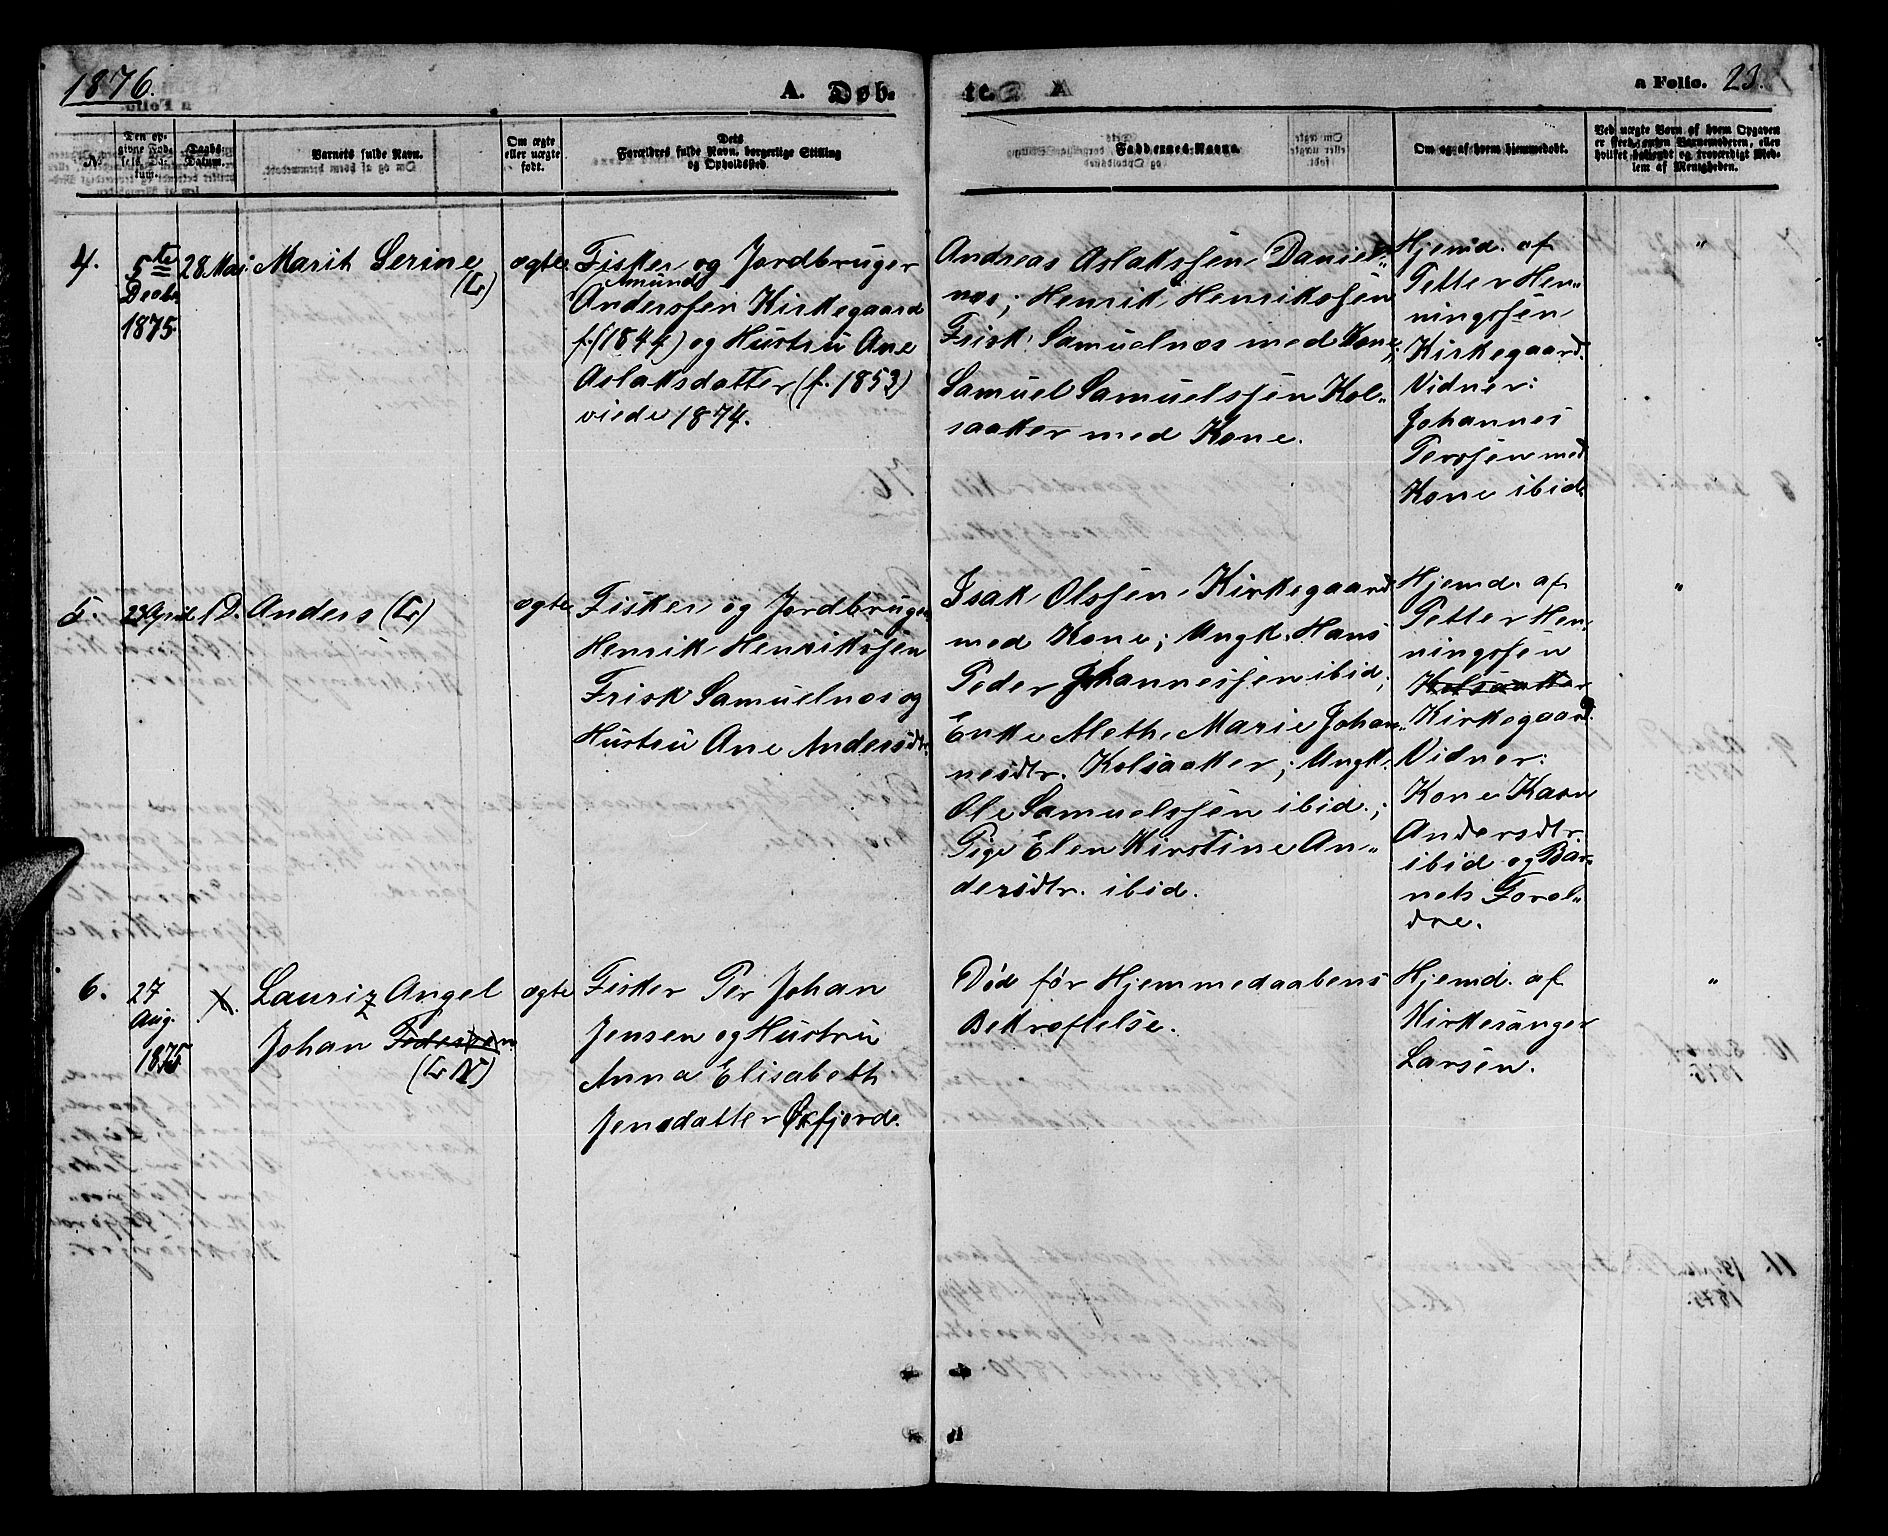 1876.
A. Døb.
te.
a Folio. 23.
N.
Den op-
givne Fød-
sels Da-
tum.
Daabs-
Datum.
Barnets fulde Navn.
Om ægte
eller uægte
født.
Dets
Forældres fulde Navn, borgerlige Stilling
og Opholdssted.
Faddernes Navne.
Om og af hvem hjemmedøbt.
Ved uægte Børn af hvem Opgaven
er skeet, enten Barnemoderen, eller
hvilket bekjendt og troværdigt Med-
lem af Menigheden.
4.
5te
Decbr
1875.
28 Mai.
Marit Serine
(L)
ægte
Fisker og Jordbruger
Amund
Anderssen Kirkegaard
f. (1844) og Hustru Ane
Aslaksdatter (f. 1853)
viede 1874.
Andreas Aslakssen Daniel"
næs; Henrik Henrikssen
Frisk Samuelnæs med Kone,
Samuel Samuelssen Kol"
saaker med Kone.
Hjemd. af
Petter Hen"
ningssen
Kirkegaard.
Vidner:
Johannes
Perssen med
Kone ibid.
"
5.
23 April
D.
Anders (L)
ægte
Fisker og Jordbruger
Henrik Henrikssen
Frisk Samuelnæs og
Hustru Ane Andersdtr.
Isak Olssen Kirkegaard
med Kone; Ungk. Hans
Peder Johannessen ibid;
Enke Meth. Marie Johan"
nesdtr. Kolsaaker; Ungk.
Ole Samuelssen ibid.;
Pige Elen Kirstine An"
dersdtr. ibid.
Hjemd. af
Petter Hen"
ningssen
Kolsaaker
Kirkegaard.
Vidner:
Kone Karn
Andersdtr.
ibid og Bar"
nets Foræl"
dre.
"
6.
27
Aug.
1875
X.
Lauriz Angel
Johan
(L N)
ægte
Fisker Per Johan
Jensen og Hustru
Anna Elisabeth
Jensdatter Øxfjord.
Død før Hjemmedaabens
Bekræftelse.
Hjemd. af
Kirkesanger
Larsen.
"